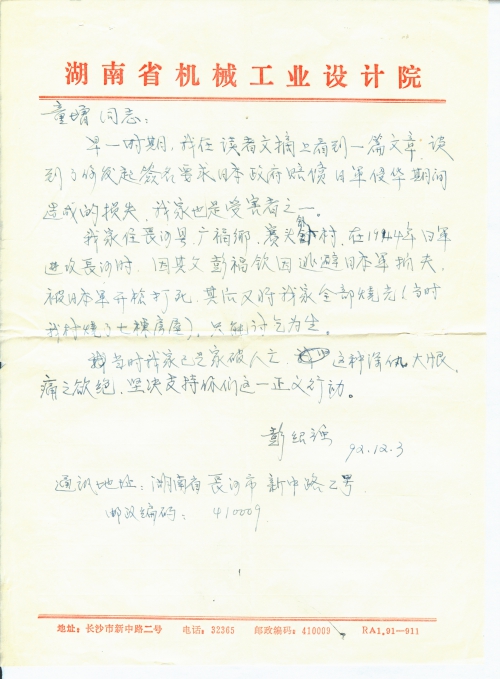 湖南省机械工业设计院
童增同志:
早一时期,我在读者文摘上看到一篇文章,谈
到了你发起签名要求日本政府赔偿日军侵华期间
造成的损失,我家也是受害者之一。
我家住长沙县,广福乡,赛头村,在1944年日军
进攻长沙时,因其父彭福钦因逃避日本军拍夫,
被日本军开枪打死,其后又将我家全部烧光(当时
我村烧了七栋房屋),只能讨乞为生。
当时我家已是家破人亡,这种深仇大恨,
痛之欲绝,坚决支持你们这一正义行动。
彭 92.12.3
通讯地址:湖南省长沙市新中路2号
邮政编码: 410009
地址:长沙市新中路二号 电话:32365 邮政编码:410009 RA1.91—911